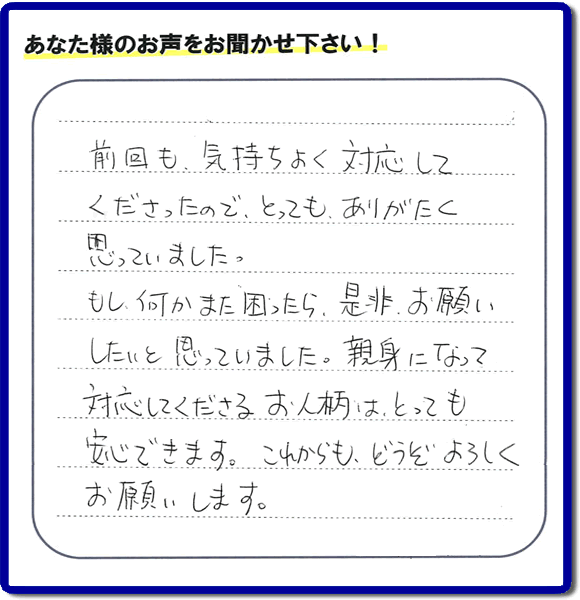 あなた様のお声をお聞かせ下さい！
前回も、気持ちよく対応して
くださったので、とっても、ありがたく
思っていました。
もし、何かまた困ったら、是非、お願い
したいと思っていました。親身になって
対応してくださるお人柄は、とっても
安心できます。これからも、どうぞよろしく
お願いします。